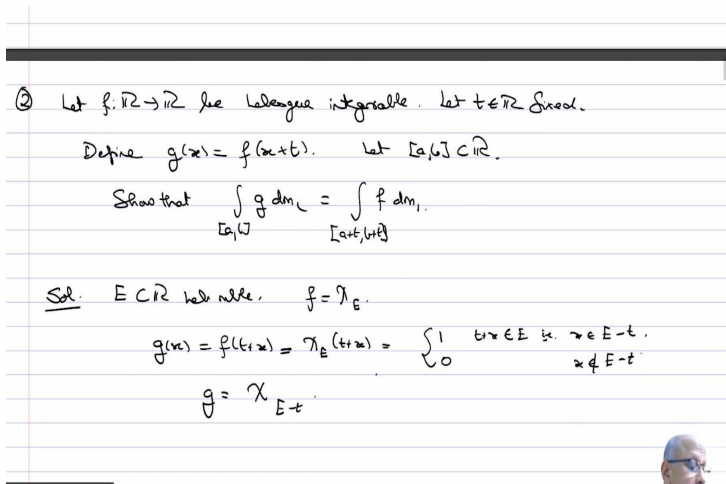 ② Let f: ℝ→ℝ be Lebesgue integrable. Let t∈ℝ fixed.
Define g(x) = f(x+t). Let [a,b]⊂ℝ.
Show that ∫_{[a,b]} g dm₁ = ∫_{[a+t,b+t]} f dm₁.
Sol. E⊂ℝ Leb. mble. f = χ_E.
g(x) = f(t+x) = χ_E(t+x) = { 1 t+x∈E ie. x∈E-t.
0 x∉E-t.
g = χ_{E-t}.